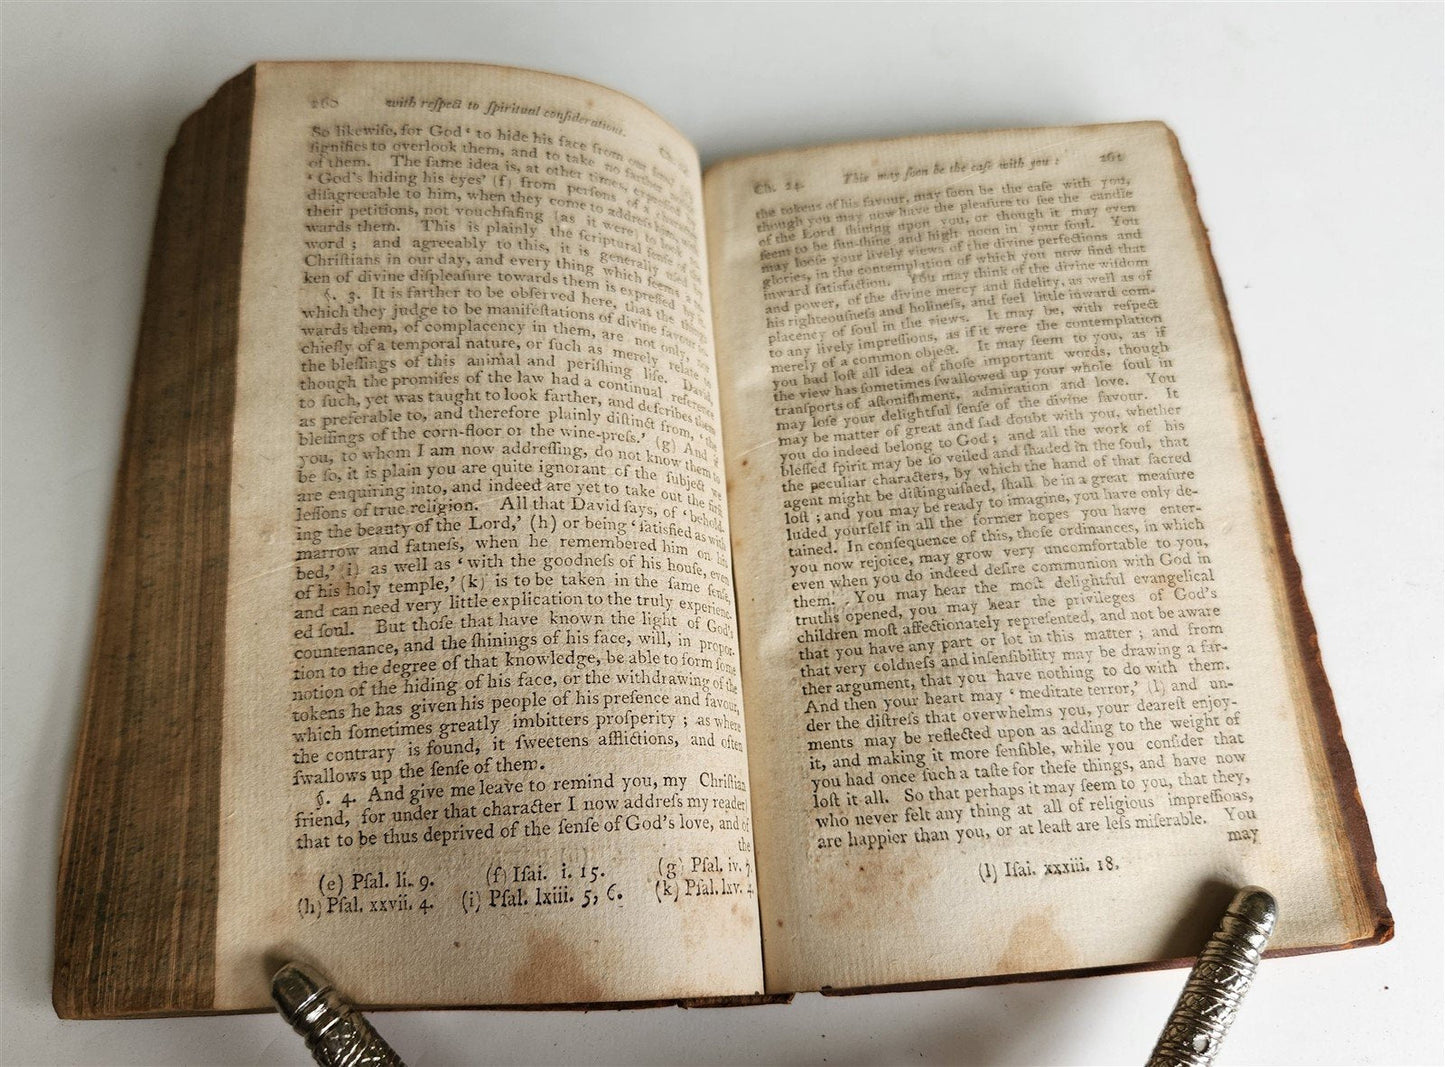 260 with reſpect to ſpiritual conſiderations. Ch.
So likewiſe, for God ‘ to hide his face from our
ſignifies to overlook them, and to take no farther
of them. The ſame idea is, at other times, expreſſed by
‘ God's hiding his eyes’ (f) from perſons of a character
diſagreeable to him, when they come to addreſs him with
their petitions, not vouchſafing (as it were) to look
wards them. This is plainly the ſcriptural ſenſe of the
word ; and agreeably to this, it is generally uſed by
Chriſtians in our day, and every thing which ſeems a to-
ken of divine diſpleaſure towards them is expreſſed by it.
§. 3. It is farther to be obſerved here, that the things
which they judge to be manifeſtations of divine favour to-
wards them, of complacency in them, are not only, nor
chiefly of a temporal nature, or ſuch as merely relate to
the bleſſings of this animal and periſhing life. David,
though the promiſes of the law had a continual reference
to ſuch, yet was taught to look farther, and deſcribes them
as preferable to, and therefore plainly diſtinct from, ‘ the
bleſſings of the corn-floor or the wine-preſs.’ (g) And if
you, to whom I am now addreſſing, do not know them to
be ſo, it is plain you are quite ignorant of the ſubject we
are enquiring into, and indeed are yet to take out the firſt
leſſons of true religion. All that David ſays, of ‘ behold-
ing the beauty of the Lord,’ (h) or being ‘ ſatisfied as with
marrow and fatneſs, when he remembered him on his
bed,’ (i) as well as ‘ with the goodneſs of his houſe, even
of his holy temple,’ (k) is to be taken in the ſame ſenſe,
and can need very little explication to the truly experienc-
ed ſoul. But thoſe that have known the light of God's
countenance, and the ſhinings of his face, will, in propor-
tion to the degree of that knowledge, be able to form ſome
notion of the hiding of his face, or the withdrawing of the
tokens he has given his people of his preſence and favour,
which ſometimes greatly imbitters proſperity ; as where
the contrary is found, it ſweetens afflictions, and often
ſwallows up the ſenſe of them.
§. 4. And give me leave to remind you, my Chriſtian
friend, for under that character I now addreſs my reader)
that to be thus deprived of the ſenſe of God's love, and of
the
(e) Pſal. li. 9. (f) Iſai. i. 15. (g) Pſal. iv. 7.
(h) Pſal. xxvii. 4. (i) Pſal. lxiii. 5, 6. (k) Pſal. lxv. 4.
Ch. 24. This may ſoon be the caſe with you : 261
the tokens of his favour, may ſoon be the caſe with you,
though you may now have the pleaſure to ſee the candle
of the Lord ſhining upon you, or though it may even
ſeem to be ſun-ſhine and high noon in your ſoul. You
may looſe your lively views of the divine perfections and
glories, in the contemplation of which you now find that
inward ſatisfaction. You may think of the divine wiſdom
and power, of the divine mercy and fidelity, as well as of
his righteouſneſs and holineſs, and feel little inward com-
placency of ſoul in the views. It may be, with reſpect
to any lively impreſſions, as if it were the contemplation
merely of a common object. It may ſeem to you, as if
you had loſt all idea of thoſe important words, though
the view has ſometimes ſwallowed up your whole ſoul in
tranſports of aſtoniſhment, admiration and love. You
may loſe your delightful ſenſe of the divine favour. It
may be matter of great and ſad doubt with you, whether
you do indeed belong to God ; and all the work of his
bleſſed ſpirit may be ſo veiled and ſhaded in the ſoul, that
the peculiar characters, by which the hand of that ſacred
agent might be diſtinguiſhed, ſhall be in a great meaſure
loſt ; and you may be ready to imagine, you have only de-
luded yourſelf in all the former hopes you have enter-
tained. In conſequence of this, thoſe ordinances, in which
you now rejoice, may grow very uncomfortable to you,
even when you do indeed deſire communion with God in
them. You may hear the moſt delightful evangelical
truths opened, you may hear the privileges of God's
children moſt affectionately repreſented, and not be aware
that you have any part or lot in this matter ; and from
that very coldneſs and inſenſibility may be drawing a far-
ther argument, that you have nothing to do with them.
And then your heart may ‘ meditate terror,’ (l) and un-
der the diſtreſs that overwhelms you, your deareſt enjoy-
ments may be reflected upon as adding to the weight of
it, and making it more ſenſible, while you conſider that
you had once ſuch a taſte for theſe things, and have now
loſt it all. So that perhaps it may ſeem to you, that they,
who never felt any thing at all of religious impreſſions,
are happier than you, or at leaſt are leſs miſerable. You
may
(l) Iſai. xxxiii. 18.